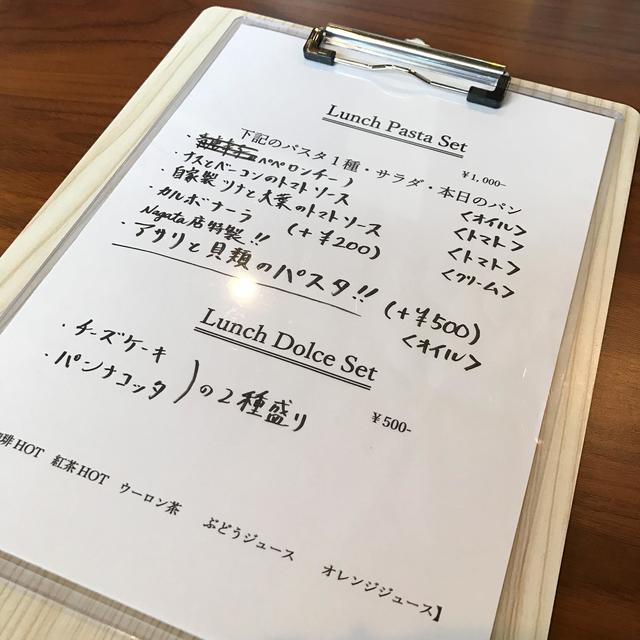 Lunch Pasta Set
¥1,000-
下記のパスタ1種・サラダ・本日のパン
・ペペロンチーノ <オイル>
・ナスとベーコンのトマトソース <トマト>
・自家製ツナと大葉のトマトソース <トマト>
・カルボナーラ (+¥200) <クリーム>
・Nagata店特製!!
アサリと貝類のパスタ!! (+¥500)
<オイル>
Lunch Dolce Set
¥500-
・チーズケーキ
・パンナコッタ )の2種盛り
琲HOT 紅茶HOT ウーロン茶 ぶどうジュース オレンジジュース】